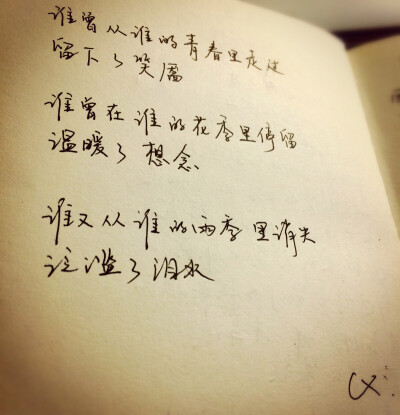 谁曾从谁的青春里走过
留下了笑靥
谁曾在谁的花季里停留
温暖了想念
谁又从谁的雨季里消失
泛滥了泪水